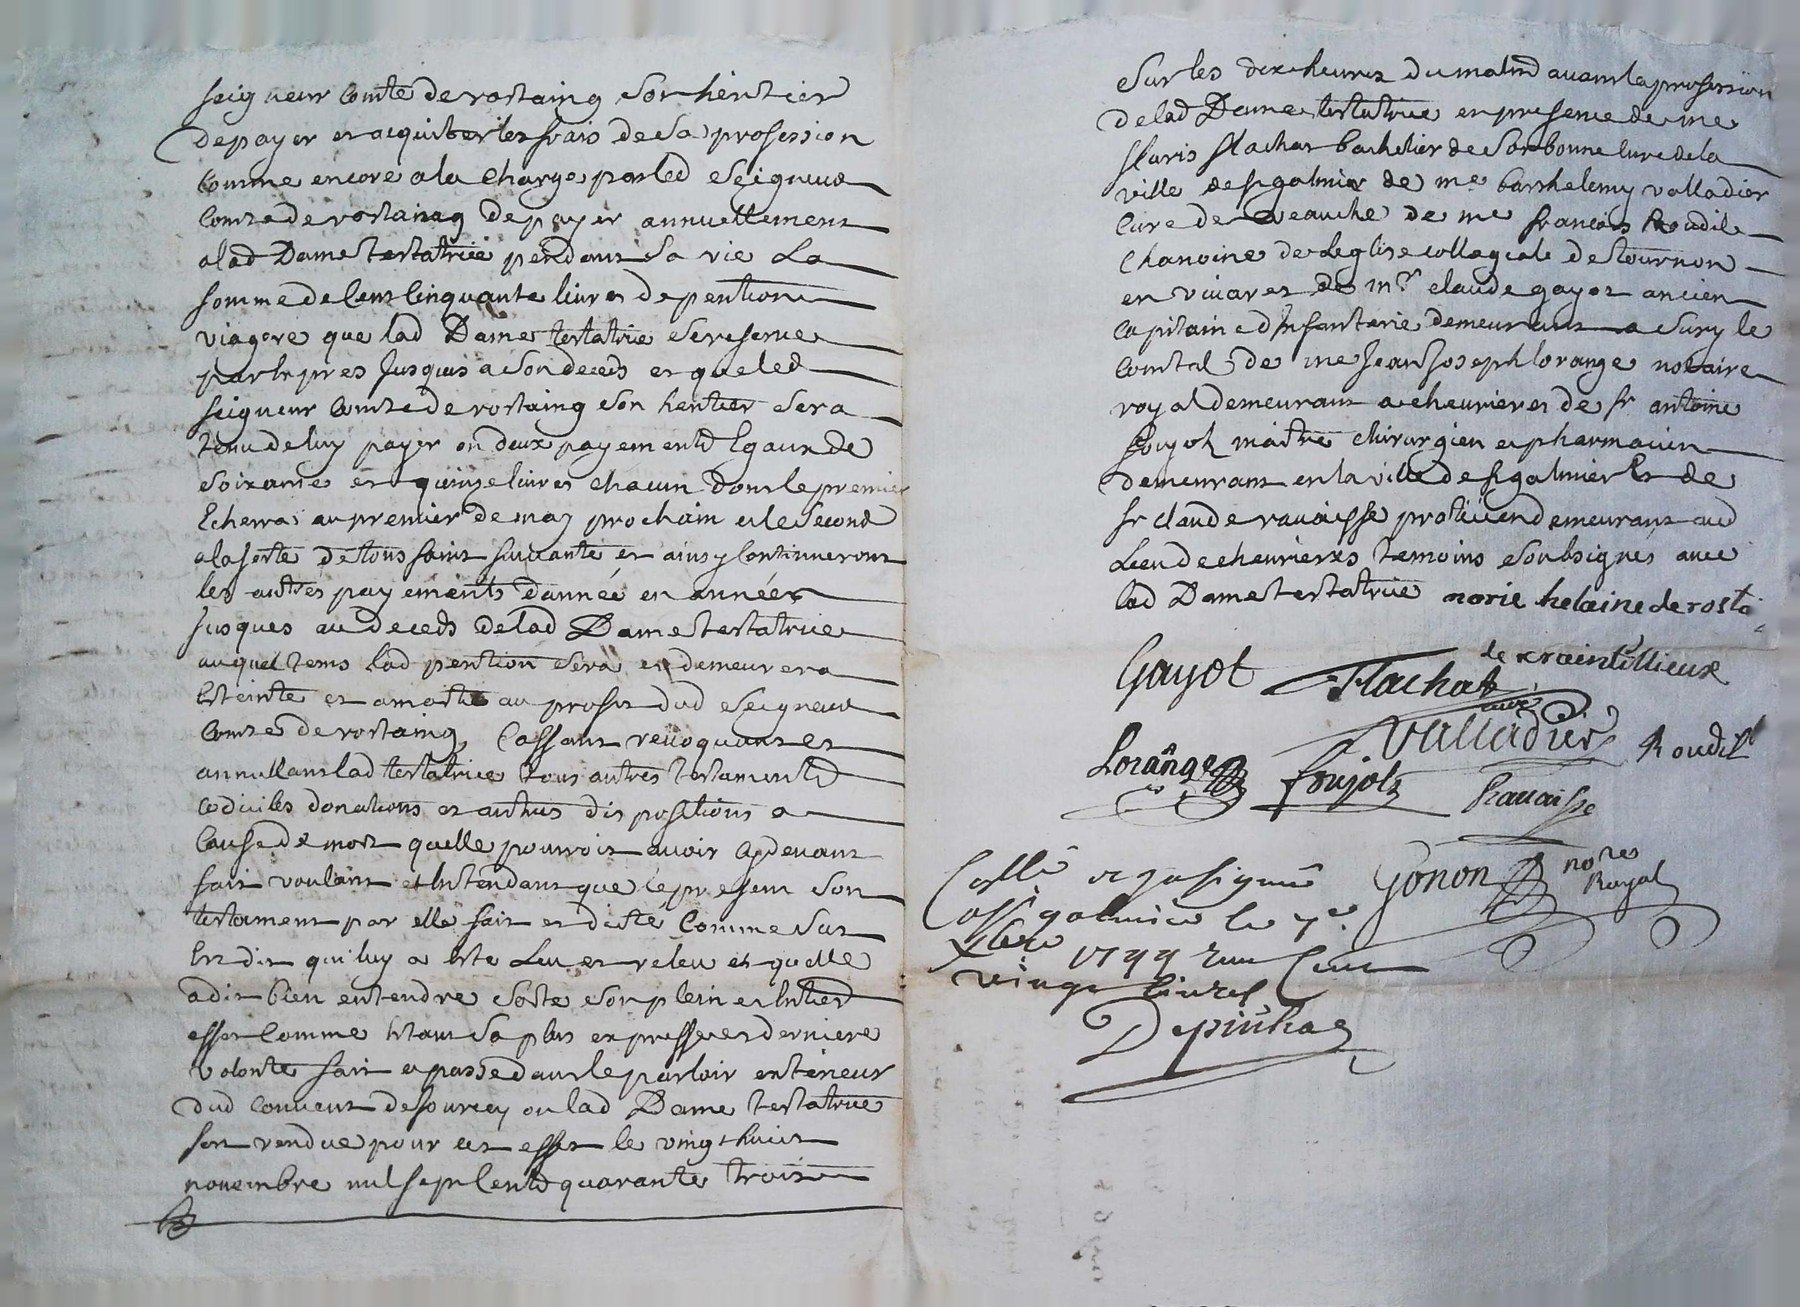 seigneur Comte de rostaing Son heritier
de payer et acquitter les frais de Sa profession
Comme encore a la Charge par led Seigneur
Comte de rostaing de payer annuellement
a lad Dame testatrice pendant Sa vie La
somme de Cent Cinquante livres de pention
viagere que lad Dame testatrice Se reserve
par lepres Jusques a Son deceds et que led
seigneur Comte de rostaing Son heritier Sera
tenu de luy payer en deux payements Egaux de
Soixante et quinze livres chacun dont le premier
Echerra au premier de may prochain et le Second
a la feste de toussaint suivante et ainsy Continueront
les autres payements d'année en année
Jusques au deceds de lad Dame testatrice
auquel tems lad pention Sera et demeurera
Esteinte et amortie au proffit dud Seigneur
Comte de rostaing, Cassant revoquant et
annullant lad testatrice tous autres testaments
codiciles donations et autres dispositions a
Cause de mort quelle pourroit avoir cy devant
fait voulant et Entendant que le present Son
testament par elle fait et dicté Comme Sus
Est dit qui luy a Esté Leu et releu et quelle
a dit bien entendre Sorte Son plein et Entier
effet Comme Etant Sa plus expresse et derniere
volonté fait et passé dans le parloir exterieur
dud Couvent de Jourcey ou lad Dame testatrice
s'est rendue pour cet effet le vingt huict
novembre mil sept Cents quarante trois
Sur les dix heures du matin avant la profession
de lad Dame testatrice en presence de me
fluris flachat bachelier de Sorbonne Curé de la
ville de st galmier de me barthelemy valladier
Curé de Veauche de me francois Roudil
Chanoine de L'eglise collegiale de Tournon
en vivarez de mr claude gayot ancien
Capitaine d'Infanterie demeurant a Sury le
Comtal de me Jean Joseph lorange notaire
royal demeurant a chevrieres de sr antoine
foujols maitre chirurgien et pharmacien
demeurant en la ville de st galmier Et de
sr claude ravaisse praticien demeurant aud
Lieu de chevrieres temoins Soubsignés avec
lad Dame testatrice marie helaine de rosta
Gayot Flachat de craintillieux
curé
Valladier Roudil
Lorange foujols Ravaisse
Gonon nore
Royal
Collé et
a st galmier le 7e
Xbre 1744 recu Cent
vingt livres
Depinhac